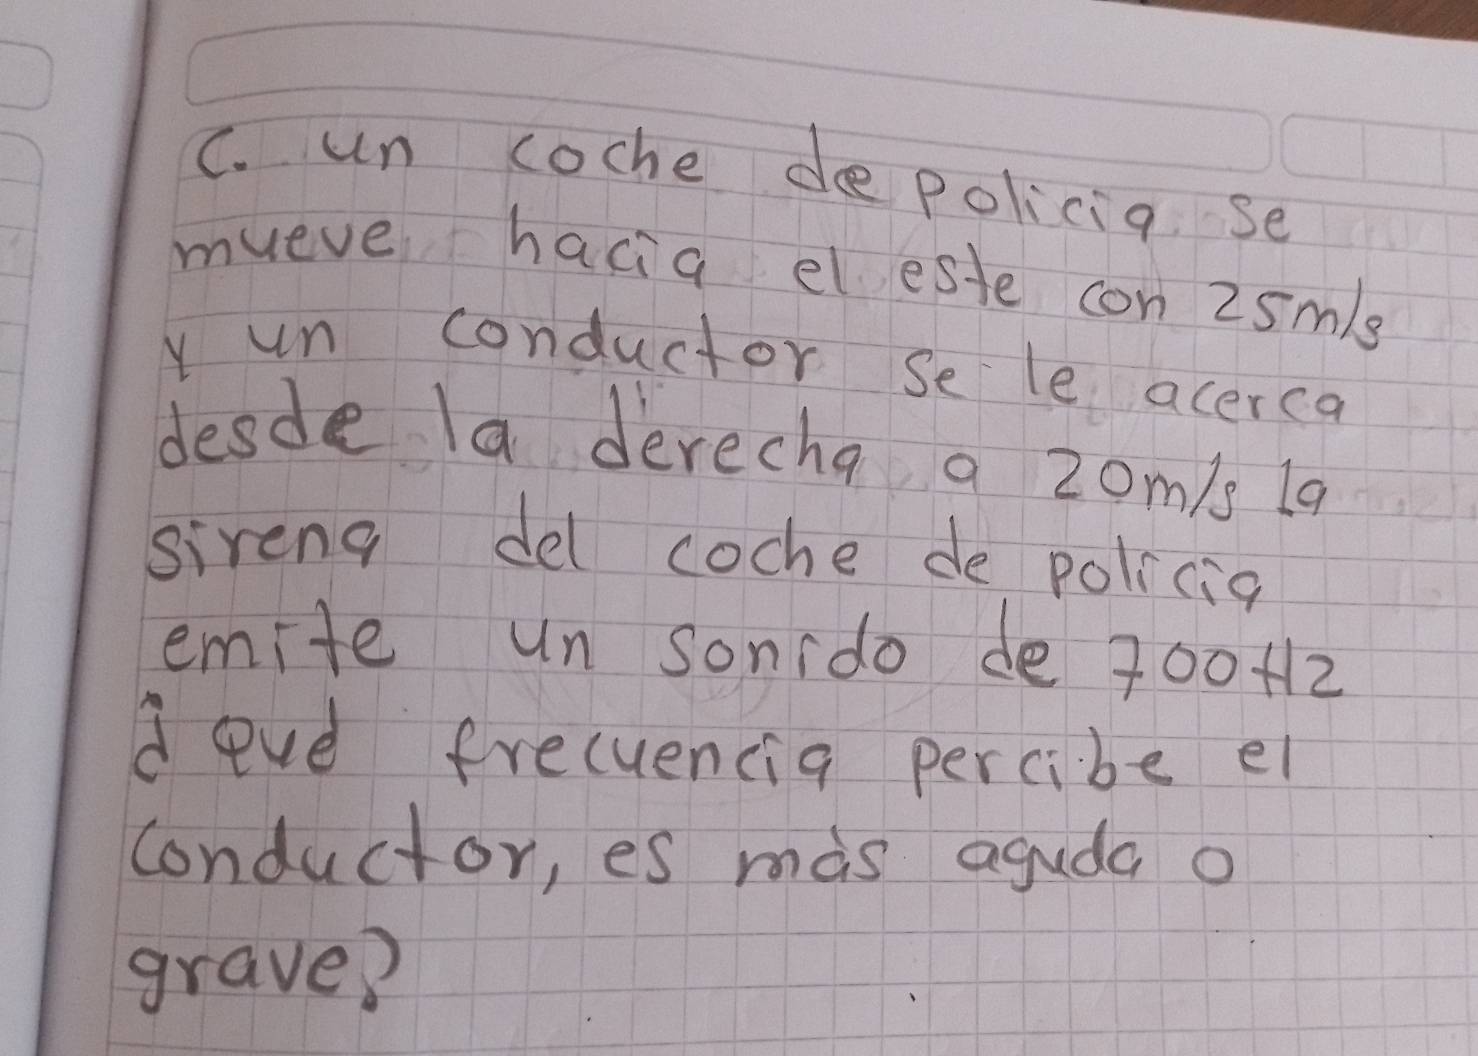 C. un coche de policia se
mueve hacia el este con 25m/s
y un conductor se le acerca
desde la derecha a 20m/s la
sirena del coche de policia
emite un sonido de 700Hz
¿ Qué frecuencia percibe el
conductor, es más aguda o
grave?